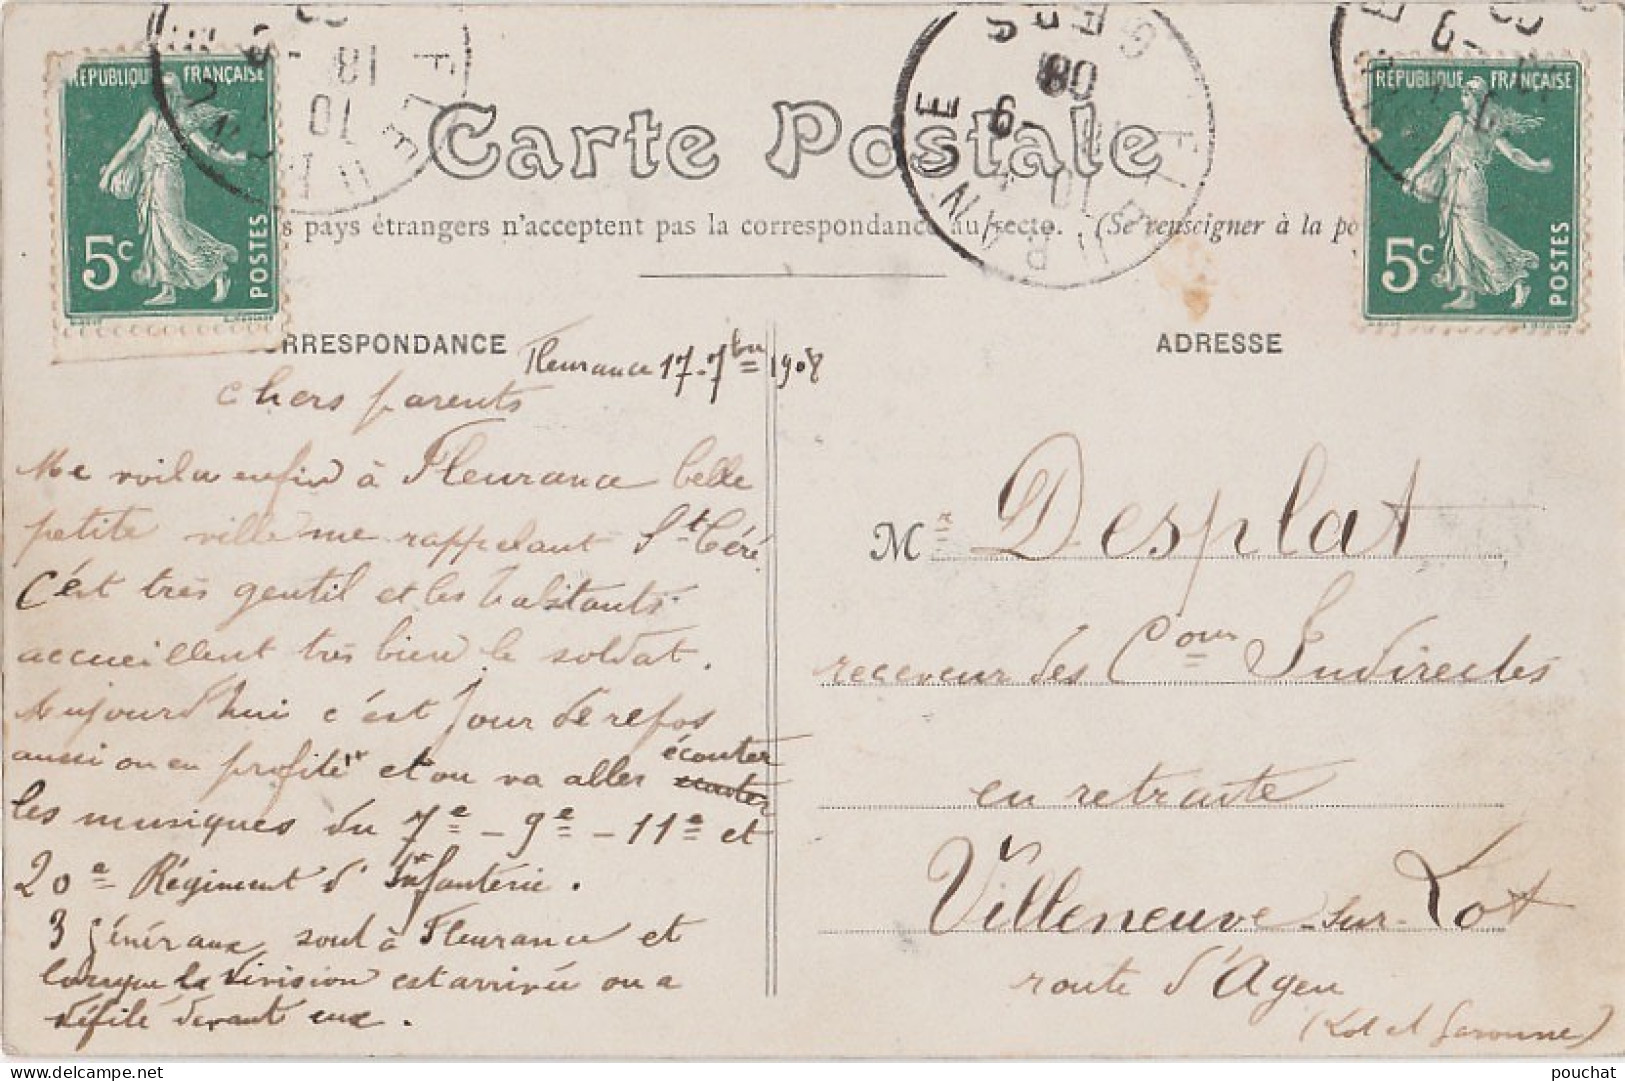 RÉPUBLIQUE FRANÇAISE
5c POSTES
FLEURANCE
GERS
RÉPUBLIQUE FRANÇAISE
5c POSTES
Carte Postale
s pays étrangers n'acceptent pas la correspondance au recto. (Se renseigner à la po
RRESPONDANCE
ADRESSE
Fleurance 17-7bre 1908
chers parents
Me voila enfin à Fleurance belle
petite ville me rappelant St Céré.
C'est très gentil et les habitants
accueillent très bien le soldat.
Aujourd'hui c'est jour de repos
aussi on en profite et on va aller écouter
les musiques du 7e - 9e - 11e et
20e Régiment d'Infanterie.
3 généraux sont à Fleurance et
lorsque la division est arrivée on a
défilé devant eux.
Mr Desplat
receveur des Cons Indirectes
en retraite
Villeneuve-sur-Lot
route d'Agen
(Lot et Garonne)
delcampe.net
pouchat